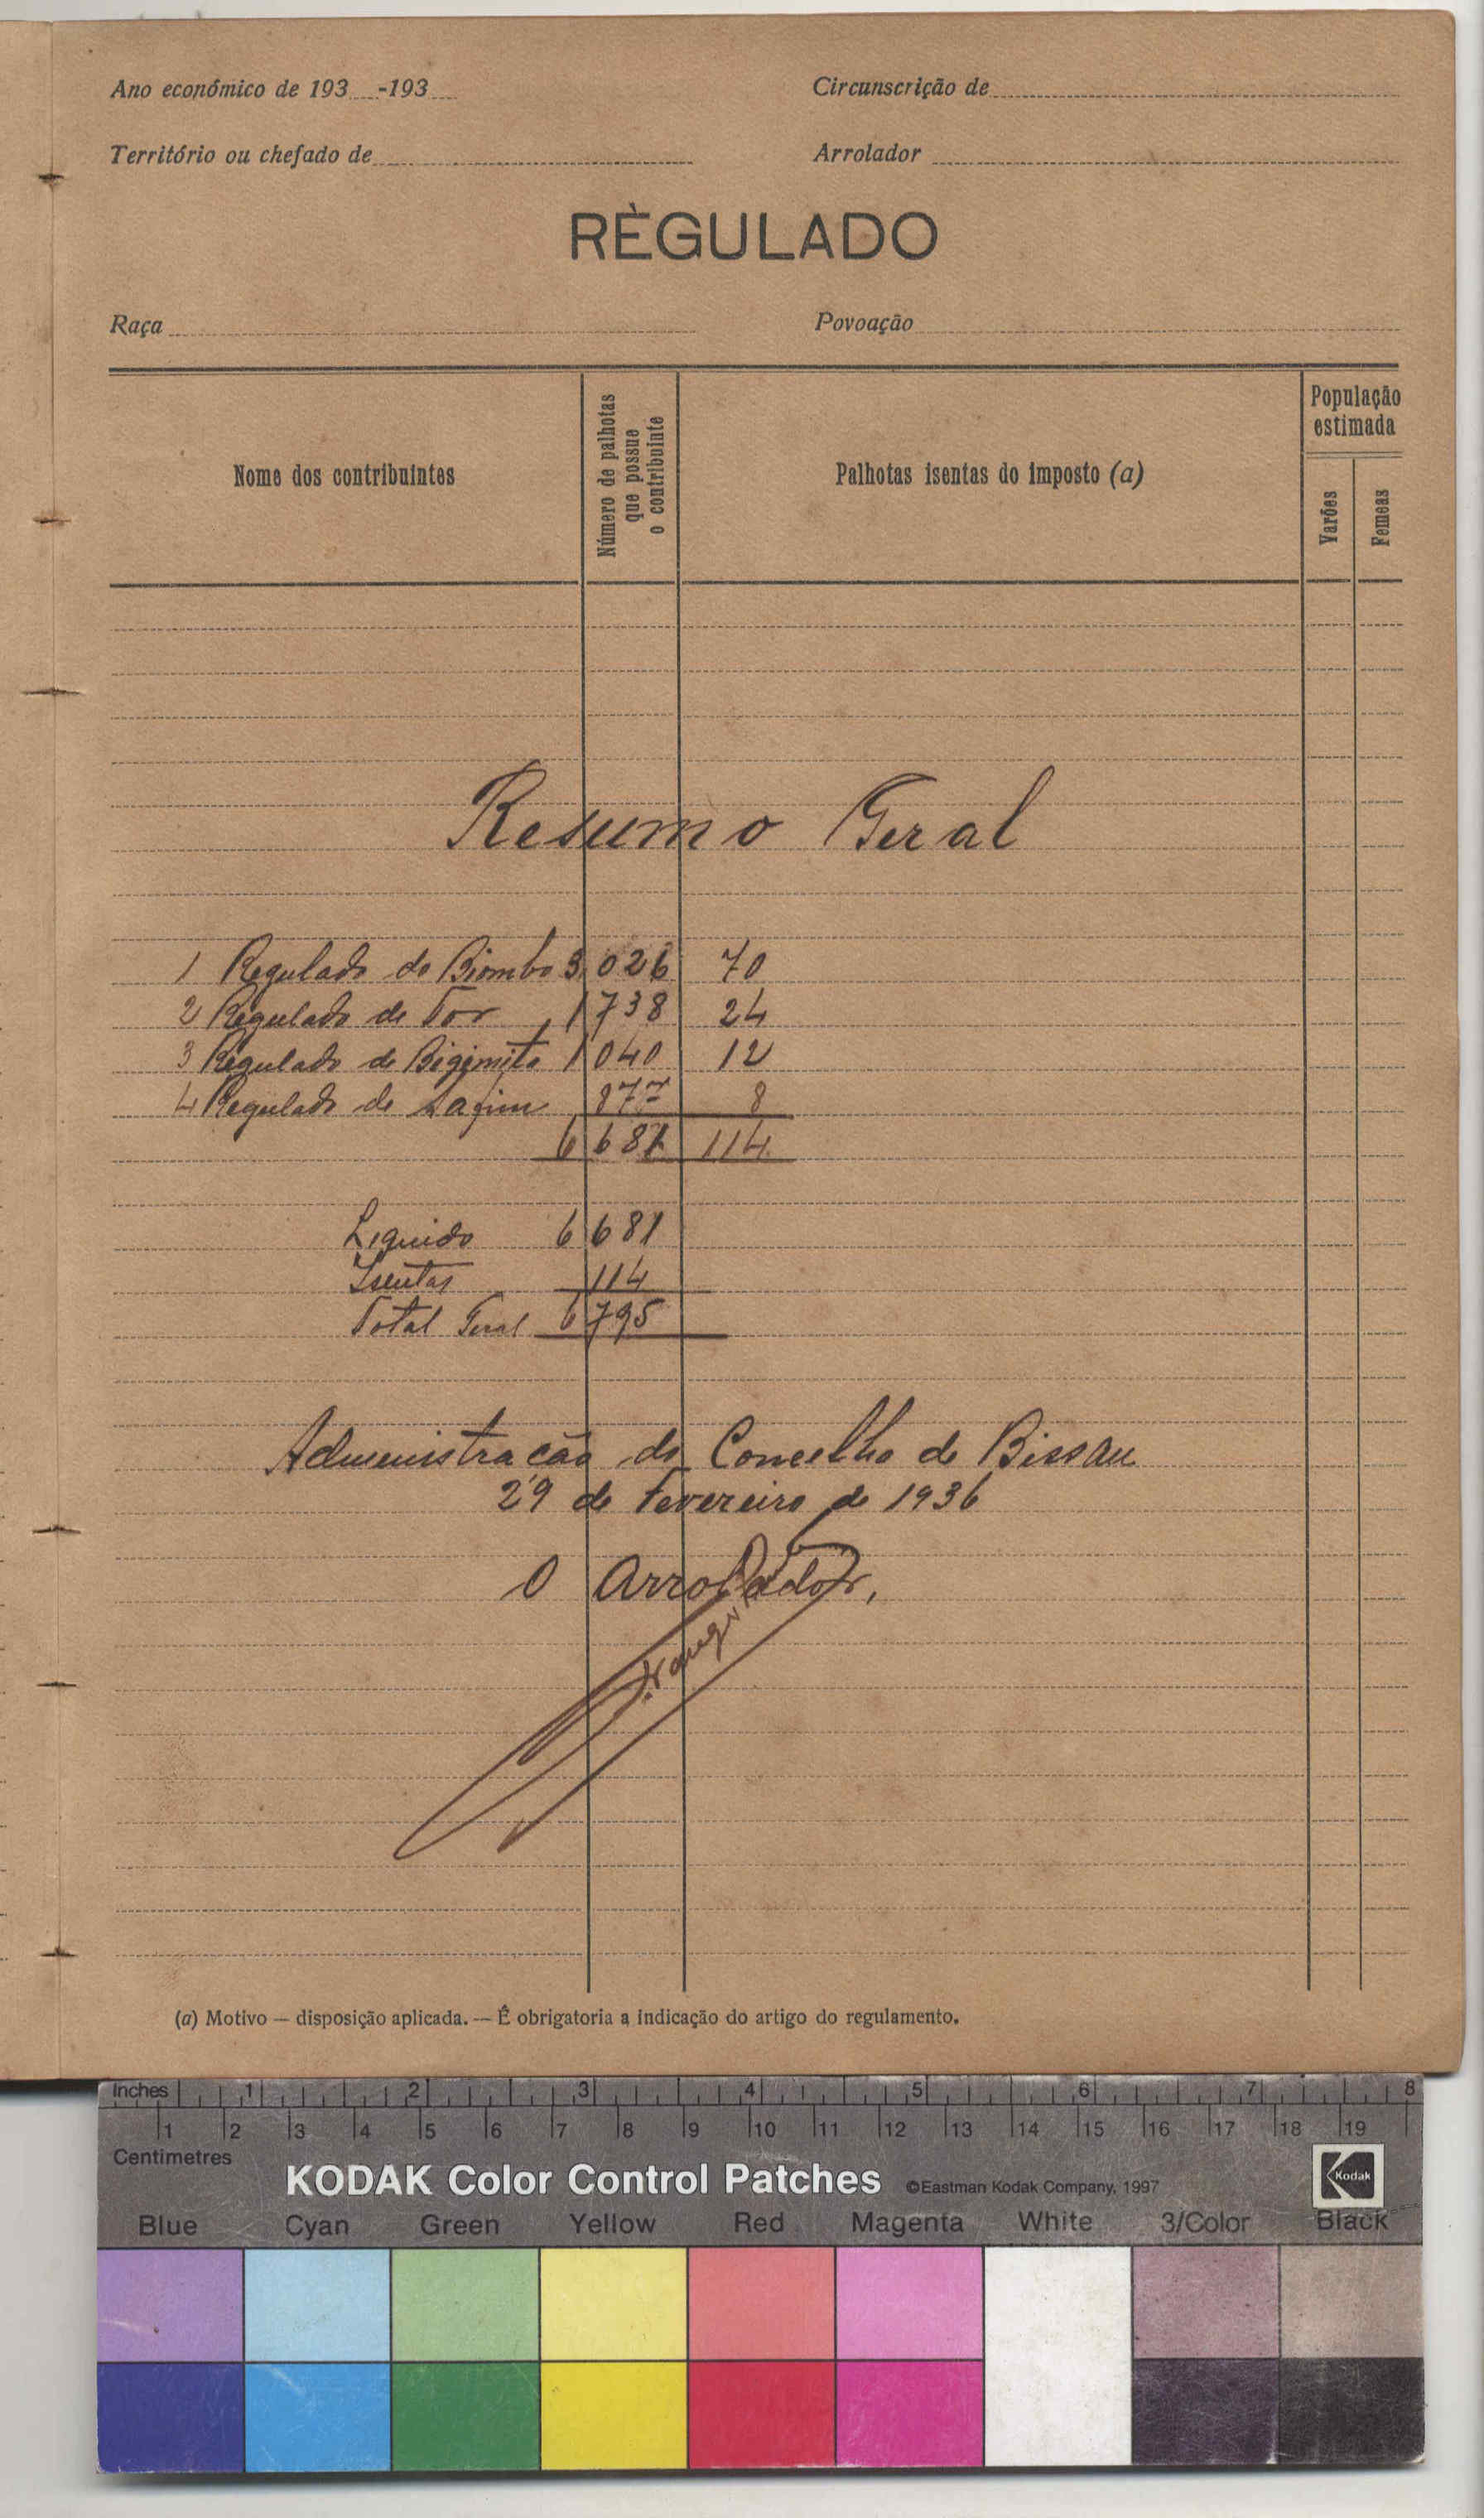 Ano económico de 193 -193
Circunscrição de
Território ou chefado de
Arrolador
RÈGULADO
Raça
Povoação
Nome dos contribuintes
Número de palhotas que possue o contribuinte
Palhotas isentas do imposto (a)
População estimada
Varões
Femeas
Resumo Geral
1 Regulado de Biombo 3 026 70
2 Regulado de Tor 1738 24
3 Regulado de Bigimita 1040 12
4 Regulado de Safim 877 8
6 681 114
Liquido 6 681
Isentas 114
Total Geral 6 795
Administracão do Concelho de Bissau
29 de Fevereiro de 1936
O Arrolador,
(a) Motivo — disposição aplicada. — É obrigatoria a indicação do artigo do regulamento.
Inches 1 2 3 4 5 6 7 8
1 2 3 4 5 6 7 8 9 10 11 12 13 14 15 16 17 18 19
Centimetres
KODAK Color Control Patches ©Eastman Kodak Company, 1997 Kodak
Blue Cyan Green Yellow Red Magenta White 3/Color Black